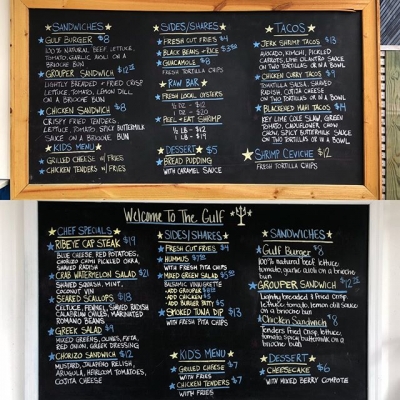 SANDWICHES
GULF BURGER $8
100% NATURAL BEEF, LETTUCE,
TOMATO, GARLIC AIOLI ON A
BRIOCHE BUN
GROUPER SANDWICH
LIGHTLY BREADED + FRIED CRISP
LETTUCE, TOMATO, LEMON DILL
ON A BRIOCHE BUN
CHICKEN SANDWICH $8
CRISPY FRIED TENDERS,
LETTUCE, TOMATO, SPICY BUTTERMILK
SAUCE ON A BRIOCHE BUN
KIDS MENU
GRILLED CHEESE W/ FRIES
CHICKEN TENDERS W/ FRIES
SIDES/SHARES
FRESH CUT FRIES $4
BLACK BEANS + RICE
GUACAMOLE $8
FRESH TORTILLA CHIPS
RAW BAR
FRESH LOCAL OYSTERS
1/2 DZ - $12
1 DZ - $20
PEEL + EAT SHRIMP
1/2 LB - $12
1 LB - $19
DESSERT $5
BREAD PUDDING
WITH CARAMEL SAUCE
TACOS
JERK SHRIMP TACOS $13
AVOCADO, KIMCHI, PICKLED
CARROTS, LIME CILANTRO SAUCE
ON TWO TORTILLAS OR IN A BOWL
CHICKEN CURRY TACOS $9
TOMATILLO SALSA, SHAVED
RADISH, COTIJA CHEESE
ON TWO TORTILLAS OR IN A BOWL
BLACKENED MAHI TACOS $14
KEY LIME COLE SLAW, GREEN
TOMATO, CAULIFLOWER CHOW
CHOW, SPICY BUTTERMILK SAUCE
ON TWO TORTILLAS OR IN A BOWL
SHRIMP CEVICHE $12
FRESH TORTILLA CHIPS
Welcome To The Gulf
CHEF SPECIALS
RIBEYE CAP STEAK $19
BLUE CHEESE, RED POTATOES,
CHORIZO CHIMI PICKLED OKRA,
SHAVED RADISH
CRAB WATERMELON SALAD $21
SHAVED SQUASH, MINT,
COCONUT VIN
SEARED SCALLOPS $18
CELTUCE, FENNEL, SHAVED RADISH
CALABRIAN CHILES, MARINATED
ROMANO BEANS
GREEK SALAD $9
MIXED GREENS, OLIVES, FETA,
RED ONION, GREEK DRESSING
CHORIZO SANDWICH $12
MUSTARD, JALAPEÑO RELISH,
ARUGULA, HEIRLOOM TOMATOES,
COJITA CHEESE
SIDES/SHARES
FRESH CUT FRIES $4
HUMMUS
WITH FRESH PITA CHIPS
MIXED GREEN SALAD
BALSAMIC VINAIGRETTE
-ADD GROUPER
-ADD CHICKEN $5
-ADD BURGER PATTY $5
SMOKED TUNA DIP $13
WITH FRESH PITA CHIPS
KIDS MENU
GRILLED CHEESE $7
WITH FRIES
CHICKEN TENDERS $7
WITH FRIES
SANDWICHES
Gulf Burger $8
100% natural beef lettuce
tomato, garlic aioli on a brioche
bun
GROUPER SANDWICH
Lightly breaded & fried crisp
lettuce, tomato, lemon dill sauce
on a brioche bun
Chicken Sandwich $8
Tenders fried crisp, lettuce
tomato, spicy buttermilk on a
brioche bun
DESSERT
CHEESECAKE $6
WITH MIXED BERRY COMPOTE